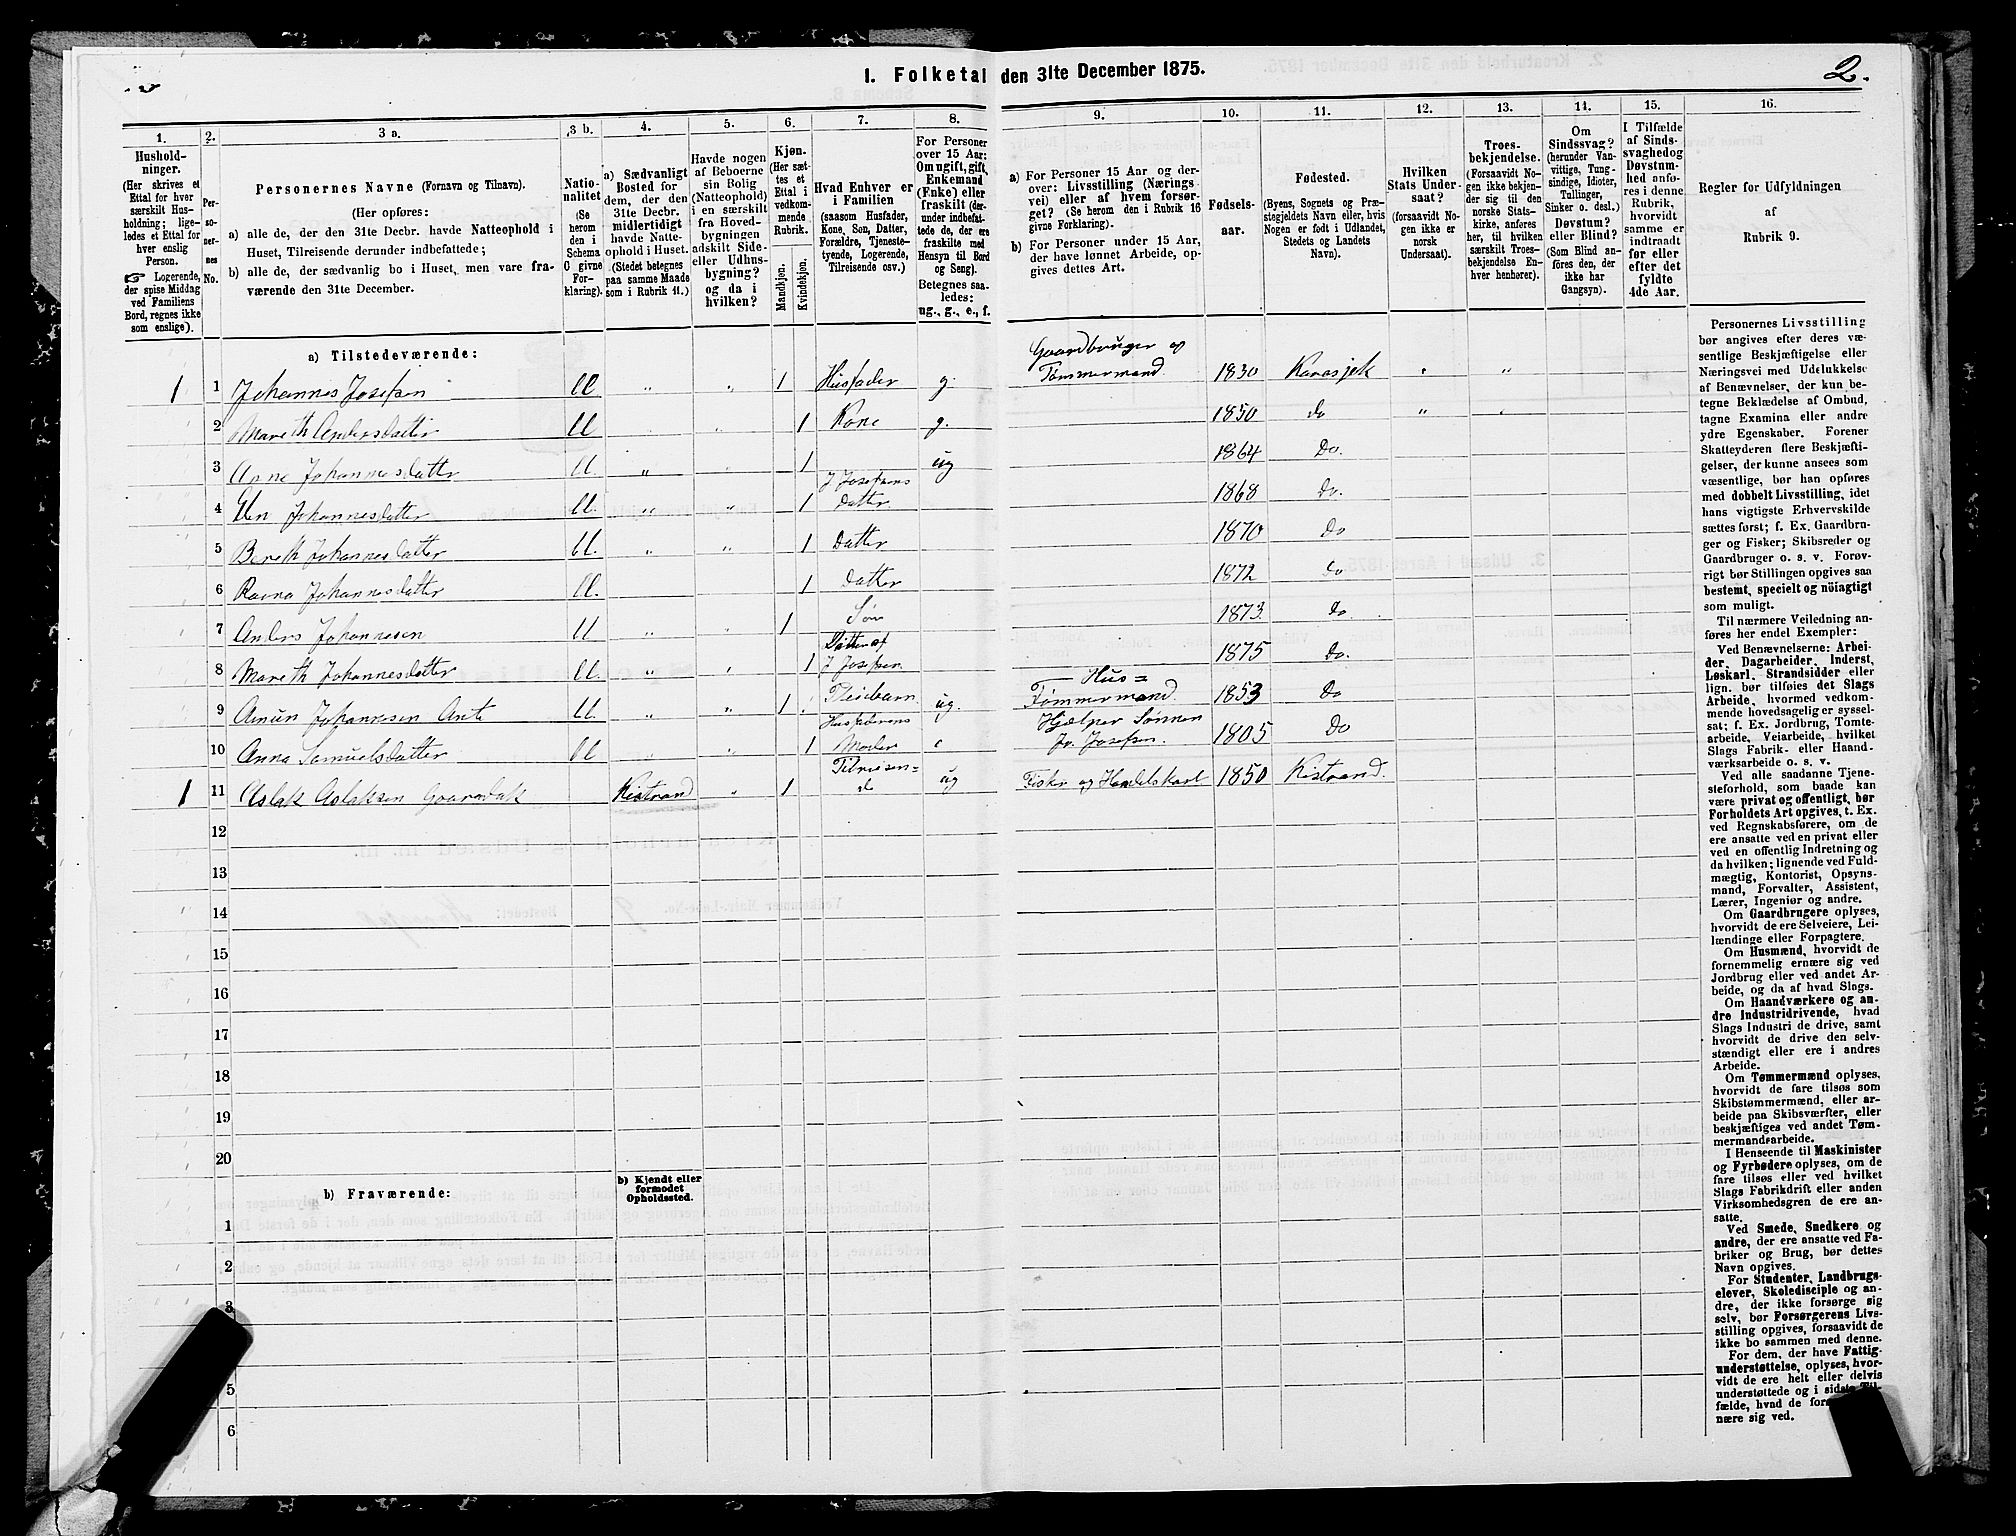 1. Folketal den 31te December 1875.
2.
1.
Hushold-
ninger.
(Her skrives et
Ettal for hver
særskilt Hus-
holdning; lige-
ledes et Ettal for
hver enslig
Person.
Logerende,
der spise Middag
ved Familiens
Bord, regnes ikke
som enslige).
2.
Per-
so-
ner-
nes
No.
3 a.
Personernes Navne (Fornavn og Tilnavn).
(Her opføres:
a) alle de, der den 31te Decbr. havde Natteophold i
Huset, Tilreisende derunder indbefattede;
b) alle de, der sædvanlig bo i Huset, men vare fra-
værende den 31te December.
3 b.
Natio-
nalitet
(Se
herom
den i
Schema
C givne
For-
klaring).
4.
a) Sædvanligt
Bosted for
dem, der den
31te Decbr.
midlertidigt
havde Natte-
ophold i Huset.
(Stedet betegnes
paa samme Maade
som i Rubrik 11.)
5.
Havde nogen
af Beboerne
sin Bolig
(Natteophold)
i en særskilt
fra Hoved-
bygningen
adskilt Side-
eller Udhus-
bygning?
og da i
hvilken?
6.
Kjøn.
(Her sæt-
tes et
Ettal i
vedkom-
mende
Rubrik.
Mandkjøn.
Kvindekjøn.
7.
Hvad Enhver er
i Familien
(saasom Husfader,
Kone, Søn, Datter,
Forældre, Tjeneste-
tyende, Logerende,
Tilreisende osv.)
8.
For Personer
over 15 Aar:
Om ugift, gift,
Enkemand
(Enke) eller
fraskilt (der-
under indbefat-
tede de, der ere
fraskilte med
Hensyn til Bord
og Seng).
Betegnes saa-
ledes:
ug., g., e., f.
9.
a) For Personer 15 Aar og der-
over: Livsstilling (Nærings
vei) eller af hvem forsør-
get? (Se herom den i Rubrik 16
givne Forklaring).
b) For Personer under 15 Aar,
der have lønnet Arbeide, op-
gives dettes Art.
10.
Fødsels-
aar.
11.
Fødested.
(Byens, Sognets og Præ-
stegjeldets Navn eller, hvis
Nogen er født i Udlandet,
Stedets og Landets
Navn).
12.
Hvilken
Stats Under-
saat?
(forsaavidt No-
gen ikke er
norsk
Undersaat).
13.
Troes-
bekjendelse.
(Forsaavidt No-
gen ikke bekjen-
der sig til den
norske Stats-
kirke, anføres
her, til hvilken
særskilt Troes-
bekjendelse En-
hver henhører).
14.
Om
Sindssvag?
(herunder Van-
vittige, Tung-
sindige, Idioter,
Tullinger,
Sinker o. desl.)
Døvstum?
eller Blind?
(Som Blind an-
føres den, der
ikke har
Gangsyn).
15.
I Tilfælde
af Sinds-
svaghed og
Døvstum-
hed anfø-
res i denne
Rubrik,
hvorvidt
samme er
indtraadt
før eller
efter det
fyldte
4de Aar.
16.
Regler for Udfyldningen
af
Rubrik 9.
a) Tilstedeværende:
1 1 Johannes Josefsen ll. „ „ 1 Husfader g. Gaardbruger og Tømmermand 1830 Karasjok „ „
2 Mareth Andersdatter ll „ 1 Kone g. 1850 do „ „
3 Anne Johannesdatter ll. „ „ 1 ug 1864 Do.
4 Elen Johannesdatter ll. „ „ 1 J Josefsens Datter 1868 Do.
5 Bereth Johannesdatter ll. „ „ 1 Datter 1870 Do
6 Ravna Johannesdatter ll. 1 Datter 1872 do
7 Anders Johannesen ll „ „ 1 Søn 1873. Do
8 Mareth Johannesdatter ll. „ „ 1 Datter af J Josefsen 1875 Do.
9 Amun Johannesen Anti ll. „ „ 1 Pleiebarn ug. Hus= Tømmermand. 1853 Do
10 Anna Samuelsdatter ll „ „ 1 Husfaderens Moder e Hjælper Sønnen Jo. Josefsen. 1805 Do
1 11 Aslak Aslaksen Kistrand „ 1 Tilreisen= de ug Fisker og Handelskarl 1850 Kistrand.
12
13
14
15
16
17
18
19
20
b) Fraværende:
b) Kjendt eller
formodet
Opholdssted.
1
2
3
5
6
Personernes Livsstilling
bør angives efter deres væ-
sentlige Beskjæftigelse eller
Næringsvei med Udelukkelse
af Benævnelser, der kun be-
tegne Beklædelse af Ombud,
tagne Examina eller andre
ydre Egenskaber. Forener
Skatteyderen flere Beskjæfti-
gelser, der kunne ansees som
væsentlige, bør han opføres
med dobbelt Livsstilling, idet
hans vigtigste Erhvervskilde
sættes først; f. Ex. Gaardbru-
ger og Fisker; Skibsreder og
Gaardbruger o. s. v. Forøv-
rigt bør Stillingen opgives saa
bestemt, specielt og nöiagtigt
som muligt.
Til nærmere Veiledning an-
føres her endel Exempler:
Ved Benævnelserne: Arbei-
der, Dagarbeider, Inderst,
Løskarl, Strandsidder eller
lign. bør tilføies det Slags
Arbeide, hvormed vedkom-
mende hovedsagelig er syssel-
sat; f. Ex. Jordbrug, Tomte-
arbeide, Veiarbeide, hvilket
Slags Fabrik- eller Haand-
værksarbeide o. s. v.
Ved alle saadanne Tjene-
steforhold, som baade kan
være privat og offentligt, bør
Forholdets Art opgives, t. Ex.
ved Regnskabsførere, om de
ere ansatte ved en privat eller
ved en offentlig Indretning og
da hvilken; lignende ved Fuld-
mægtig, Kontorist, Opsyns-
mand, Forvalter, Assistent,
Lærer, Ingeniør og andre.
Om Gaardbrugere oplyses,
hvorvidt de ere Selveiere, Lei-
lændinge eller Forpagtere.
Om Husmænd, hvorvidt de
fornemmelig ernære sig ved
Jordbrug eller ved andet Ar-
beide, og da af hvad Slags.
Om Haandværkere og an-
dre Industridrivende, hvad
Slags Industri de drive, samt
hvorvidt de drive den selv-
stændigt eller ere i andres
Arbeide.
Om Tømmermænd oplyses,
hvorvidt de fare tilsøs som
Skibstømmermænd, eller ar-
beide paa Skibsværfter, eller
beskjæftiges ved andet Tøm-
mermandsarbeide.
I Henseende til Maskinister
og Fyrbødere oplyses, om de
fare tilsøs eller ved hvilket
Slags Fabrikdrift eller anden
Virksomhedsgren de ere an-
satte.
Ved Smede, Snedkere og
andre, der ere ansatte ved Fa-
briker og Brug, bør dettes
Navn opgives.
For Studenter, Landbrugs-
elever, Skoledisciple og an-
dre, der ikke forsørge sig
selv, bør Forsørgerens Livs-
stilling opgives, forsaavidt de
ikke bo sammen med denne.
For dem, der have Fattig-
understøttelse, oplyses, hvor-
vidt de ere helt eller delvis
understøttede og i sidste Til-
fælde, hvad de
nære sig ved.